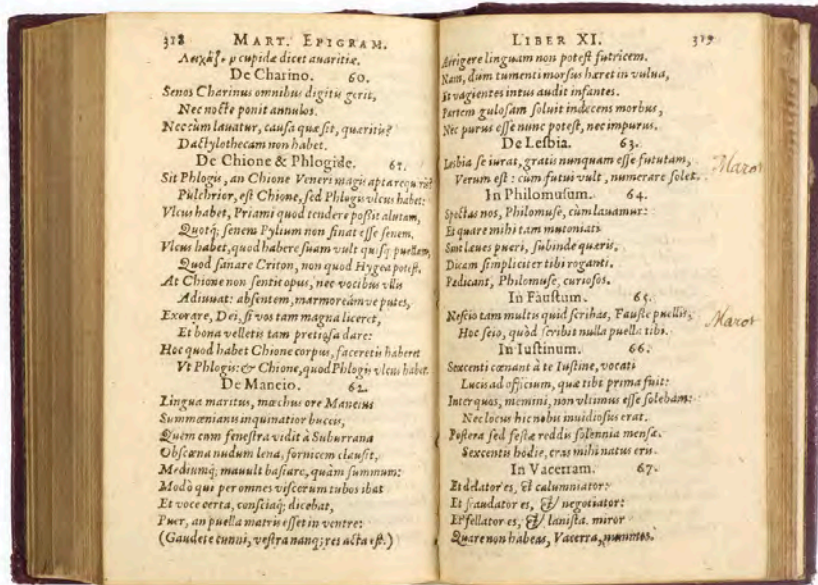 318 MART. EPIGRAM.
cupidæ dicet avaritiæ.
De Charino. 60.
Senos Charinus omnibus digitis gerit,
Nec nocte ponit annulos.
Nec cùm lauatur, causa quæ sit, quæritis?
Dactylothecam non habet.
De Chione & Phlogide. 61.
Sit Phlogis, an Chione Veneri magis apta requiris?
Pulchrior, est Chione, sed Phlogis vlcus habet:
Vlcus habet, Priami quod tendere poßit alutam,
Quotq; senem Pylium non sinat esse senem.
Vlcus habet, quod habere suam vult quisq; puellam,
Quod sanare Criton, non quod Hygea potest.
At Chione non sentit opus, nec vocibus vllis
Adiuuat: absentem, marmoreámve putes,
Exorare, Dei, si vos tam magna liceret,
Et bona velletis tam pretiosa dare:
Hoc quod habet Chione corpus, faceretis haberet
Vt Phlogis: & Chione, quod Phlogis vlcus habet.
De Mancio. 62.
Lingua maritus, mœchus ore Mancius
Summœnianis inquinatior buccis,
Quem cum fenestra vidit à Suburrana
Obscœna nudum lena, fornicem clausit,
Mediumq; mauult basiare, quàm summum:
Modò qui per omnes viscerum tubos ibat
Et voce certa, consciaq; dicebat,
Puer, an puella matris esset in ventre:
(Gaudete cunni, vestra nanq; res acta est.)
LIBER XI. 319
Arrigere linguam non potest fututricem.
Nam, dum tumenti morsus hæret in vulua,
Et vagientes intus audit infantes.
Partem gulosam soluit indecens morbus,
Nec purus esse nunc potest, nec impurus.
De Lesbia. 63.
Lesbia se iurat, gratis nunquam esse fututam,
Verum est: cùm futui vult, numerare solet.
Marot
In Philomusum. 64.
Spectas nos, Philomuse, cùm lauamur:
Et quare mihi tam mutoniati
Sint læues pueri, subinde quæris,
Dicam simpliciter tibi roganti.
Pædicant, Philomuse, curiosos.
In Faustum. 65.
Nescio tam multis quid scribas, Fauste puellis,
Hoc scio, quòd scribit nulla puella tibi.
Marot
In Iustinum. 66.
Sexcenti cœnant à te Iustine, vocati
Lucis ad officium, quæ tibi prima fuit:
Inter quos, memini, non vltimus esse solebam:
Nec locus hic nobis inuidiosus erat.
Postera sed festæ reddis solennia mensæ.
Sexcentis hodie, cras mihi natus eris.
In Vacerram. 67.
Et delator es, & calumniator:
Et fraudator es, & negotiator:
Et fellator es, & lanista. miror
Quare non habeas, Vacerra, nummos.